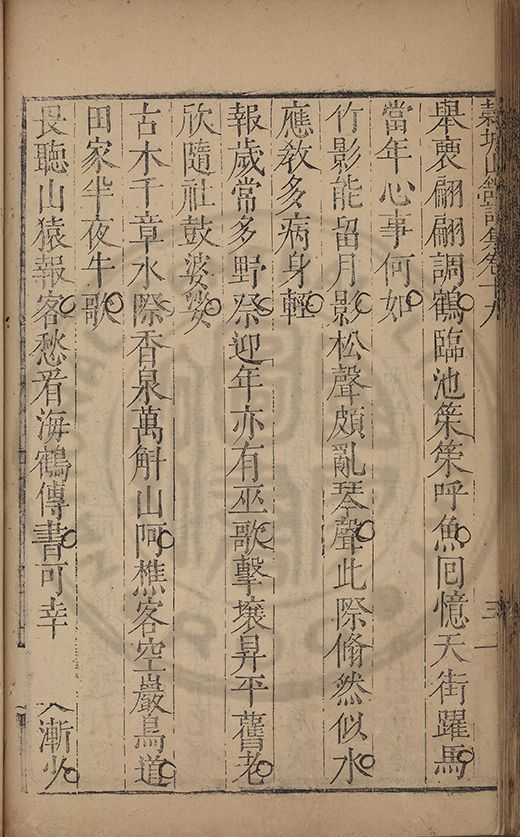 穀城山館詩集卷十八 三一
舉褎翩翩調鶴臨池策策呼魚回憶天街躍馬
當年心事何如
竹影能留月影松聲頗亂琴聲此際翛然似水
應教多病身輕
報歲常多野祭迎年亦有巫歌擊壤昇平舊老
欣隨社鼓婆娑
古木千章水際香泉萬斛山阿樵客空巖鳥道
田家半夜牛歌
畏聽山猿報客愁看海鶴傳書可幸 漸少